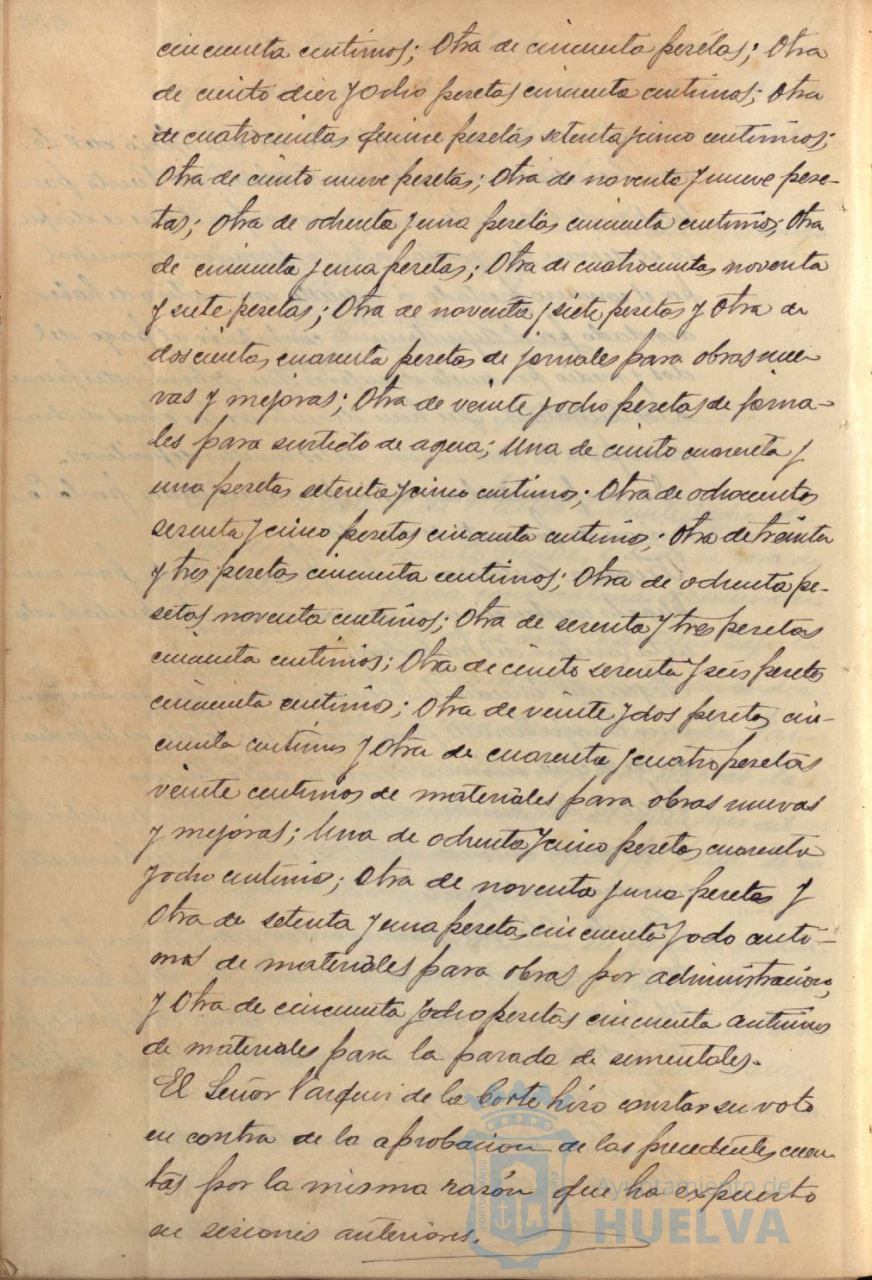 cincuenta centimos; Otra de cincuenta pesetas; Otra
de ciento diez y ocho pesetas cincuenta centimos; Otra
de cuatrocientas quince pesetas setenta y cinco centimos;
Otra de ciento nueve pesetas; Otra de noventa y nueve pese-
tas; Otra de ochenta y una pesetas cincuenta centimos; Otra
de cincuenta y una pesetas; Otra de cuatrocientas noventa
y siete pesetas; Otra de noventa y siete pesetas y Otra de
doscientas cuarenta pesetas de jornales para obras nue-
vas y mejoras; Otra de veinte y ocho pesetas de jorna-
les para surtido de agua; Una de ciento cuarenta y
una pesetas setenta y cinco centimos; Otra de ochocientos
sesenta y cinco pesetas cincuenta centimos; Otra de treinta
y tres pesetas cincuenta centimos; Otra de ochenta pe-
setas noventa centimos; Otra de sesenta y tres pesetas
cincuenta centimos; Otra de ciento sesenta y seis pesetas
cincuenta centimos; Otra de veinte y dos pesetas cin-
cuenta centimos y Otra de cuarenta y cuatro pesetas
veinte centimos de materiales para obras nuevas
y mejoras; Una de ochenta y cinco pesetas cuarenta
y ocho centimos; Otra de noventa y una pesetas y
Otra de setenta y una pesetas cincuenta y ocho centi-
mos de materiales para obras por administracion,
y Otra de cincuenta y ocho pesetas cincuenta centimos
de materiales para la parada de sementales.
El Señor Vazquez de la Corte hizo constar su voto
en contra de la aprobacion de las precedentes cuen-
tas por la misma razón que ha expuesto
en sesiones anteriores.
Ayuntamiento de
HUELVA